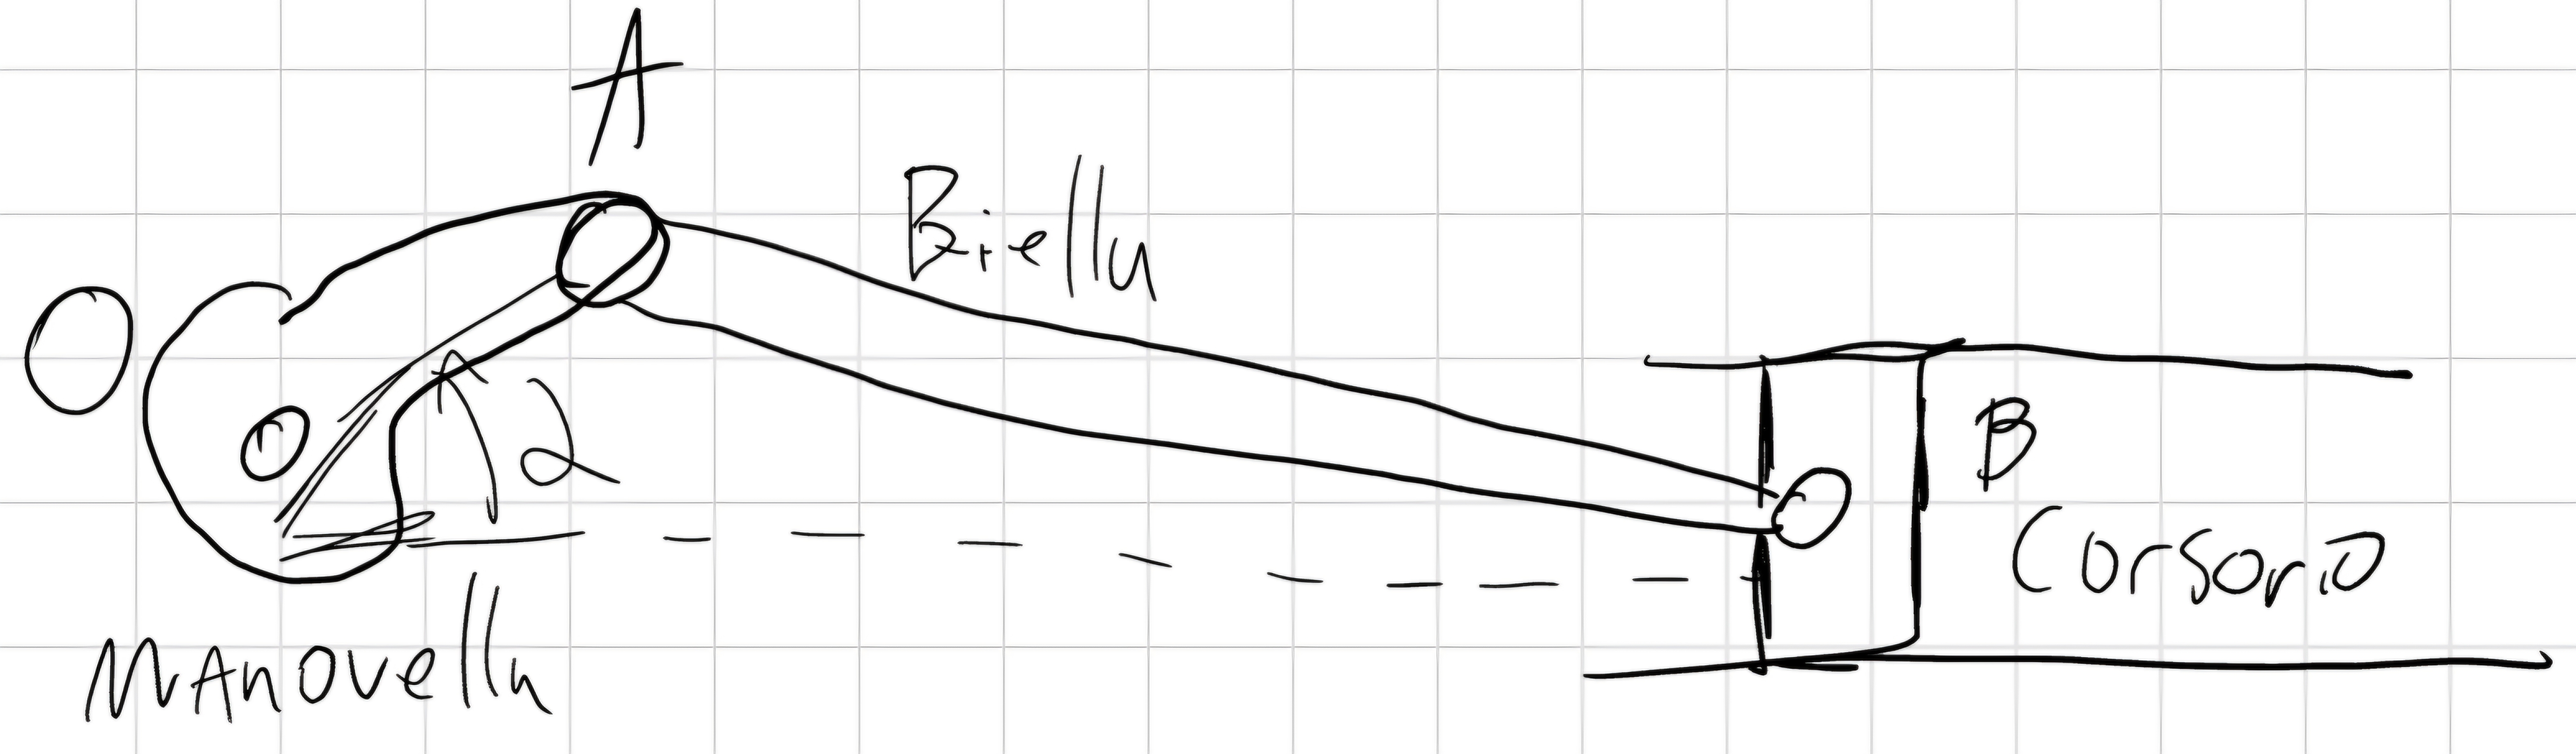 A
Biella
O
α
B
Corsorio
MAnovella